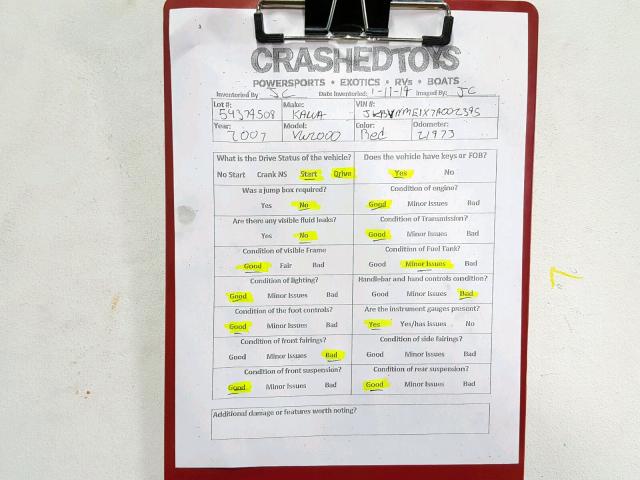 CRASHEDTOYS
POWERSPORTS • EXOTICS • RVs • BOATS
Inventoried By JC Date Inventoried: 1-11-19 Imaged By: JC
Lot #: Make: VIN #:
54379508 KAWA
Year: Model: Color: Odometer:
2007 VN2000 Red 21973
What is the Drive Status of the vehicle? Does the vehicle have keys or FOB?
No Start Crank NS Start Drive Yes No
Was a jump box required? Condition of engine?
Yes No Good Minor Issues Bad
Are there any visible fluid leaks? Condition of Transmission?
Yes No Good Minor Issues Bad
Condition of visible Frame Condition of Fuel Tank?
Good Fair Bad Good Minor Issues Bad
Condition of lighting? Handlebar and hand controls condition?
Good Minor Issues Bad Good Minor Issues Bad
Condition of the foot controls? Are the instrument gauges present?
Good Minor Issues Bad Yes Yes/has Issues No
Condition of front fairings? Condition of side fairings?
Good Minor Issues Bad Good Minor Issues Bad
Condition of front suspension? Condition of rear suspension?
Good Minor Issues Bad Good Minor Issues Bad
Additional damage or features worth noting?